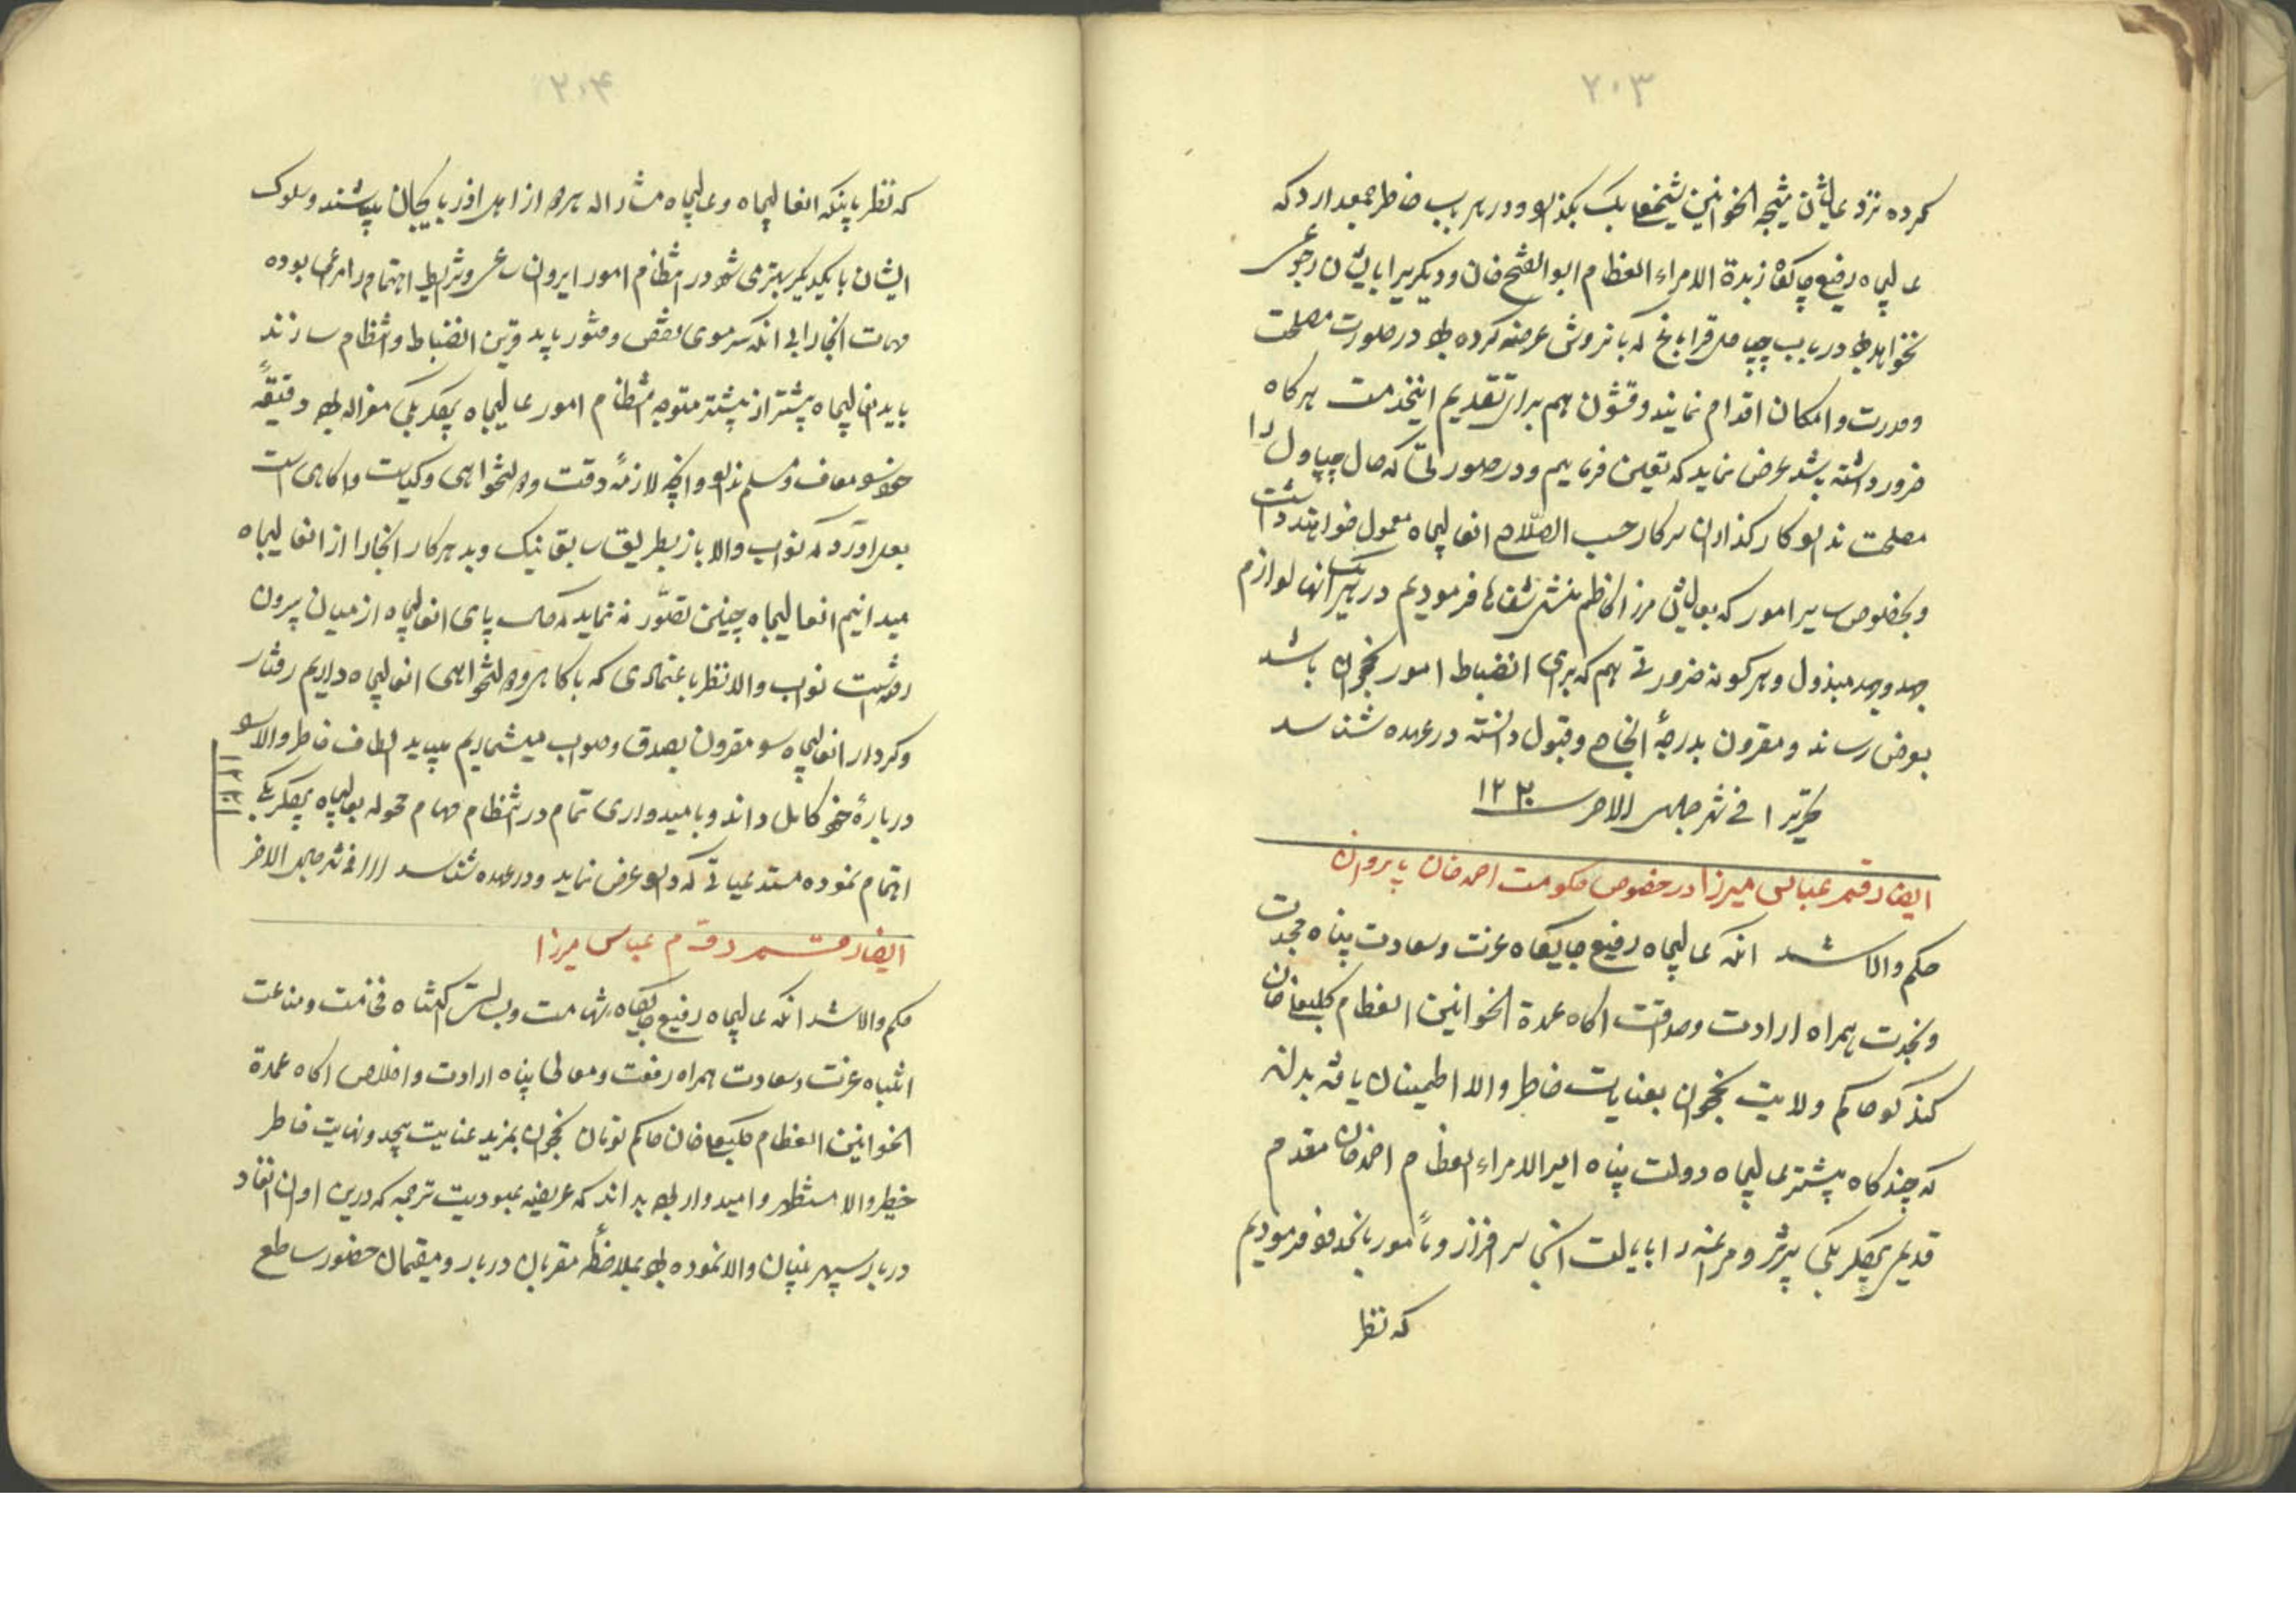 ۲۰۳
کرده نزد عالیشان نتیجه الخوانین شیخعلی بیک بگذارد و در هر باب خاطر جمع دارد که
عالیجاه رفیع جایگاه زبدة الامراء العظام ابوالفتح خان و دیگریرا بایشان رجوعی
نخواهد بود در باب چپاول قراباغ که بانروش عرض کرده بود در صورت مصلحت
و قدرت و امکان اقدام نمایند و قشون هم برای تقدیم اینخدمت هرکاه
ضرور داشته باشد عرض نماید که تعیین فرماییم و در صورتی که حال چپاول را
مصلحت نداند کارکذاران سرکار حسب الصلاح انعالیجاه معمول خواهند داشت
و بخصوص سایر امور که بعالیشان میرزا کاظم منشی شفاها فرمودیم در هر یک انها لوازم
جد و جهد مبذول و هرکونه ضرورتی هم که برای انضباط امور نخجوان باشد
بعرض رساند و مقرون بدرجهٔ انجاح و قبول دانسته در عهده شناسد
تحریرا فی شهر جمادی الاخر سنه ۱۲۳۰
ایضا رقم عباس میرزا در خصوص حکومت احمد خان بایروان
حکم والا شد انکه عالیجاه رفیع جایکاه عزت و سعادت پناه مجدت
و نجدت همراه ارادت و صداقت اکاه عمدة الخوانین العظام کلبعلی خان
کنکرلو حاکم ولایت نخجوان بعنایات خاطر والا اطمینان یافته بداند
که چند کاه پیشتر عالیجاه دولت پناه امیر الامراء العظام احمد خان مقدم
قدیم بیکلربیکی تبریز و مراغه را بایالت انجا سرافراز و مامور بانحدود فرمودیم
که نظر
۲۰۴
که نظر باینکه انعالیجاه و عالیجاه مشارالیه هر دو از اهل اذربایجان میباشند و سلوک
ایشان با یکدیکر بهتر می شود در انتظام امور ایروان ساعی و شرایط اهتمام را مرعی بوده
مهمات انجا را بی انکه سرموی نقص و فتور یابد قرین انضباط و انتظام سازند
باید انعالیجاه بیشتر از پیشتر متوجه انتظام امور عالیجاه بیکلربیکی معزی الیه بوده دقیقهٔ
خود را معاف و مسلم نداند و انچه لازمهٔ دقت و دولتخواهی و کیاست و اکاهی است
بعمل اورد که نواب والا باز بطریق سابق نیک و بد هر کار انجا را از انعالیجاه
میدانیم انعالیجاه چنین تصور نه نماید که حال پای انعالیجاه از میان بیرون
رفته است نواب والا نظر باعتمادی که باکاهی و دولتخواهی انعالیجاه داریم رفتار
و کردار انعالیجاه را مقرون بصدق و صواب میشماریم میباید الطاف خاطر والا را
دربارهٔ خود کامل داند و بامیدواری تمام در انتظام مهام محوله بعالیجاه بیکلربیکی
اهتمام نموده مستدعیاتی که دارد عرض نماید و در عهده شناسد تحریرا فی شهر جمادی الاخر
۱۲۳۱
ایضا رقم رقم عباس میرزا
حکم والا شد انکه عالیجاه رفیع جایکاه شهامت و بسالت اکتناه فخامت و مناعت
انتباه عزت و سعادت همراه رفعت و معالی پناه ارادت و اخلاص اکاه عمدة
الخوانین العظام کلبعلی خان حاکم تومان نخجوان بمزید عنایت بیحد و نهایت خاطر
خطیر والا مستظهر و امیدوار بوده بداند که عریضه عبودیت ترجمه که درین اوان انفاد
دربار سپهر بنیان والا نموده بود بملاحظه مقربان دربار و مقیمان حضور ساطع